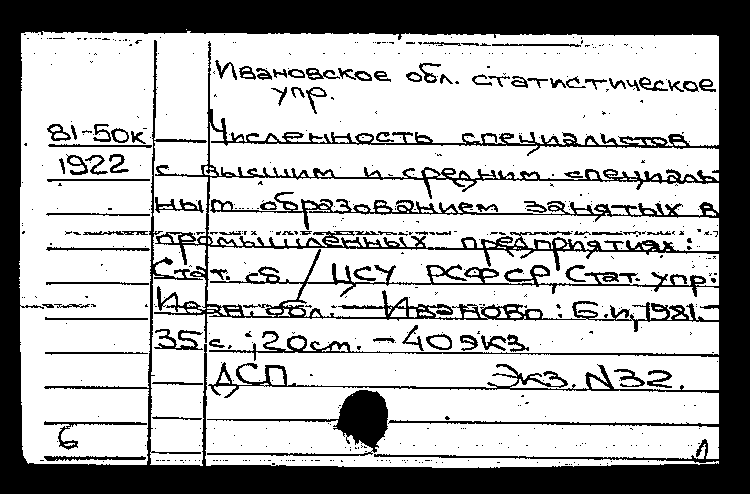 Ивановское обл. статистическое
упр.
81-50к Численность специалистов
1922 с высшим и средним специаль
ным образованием занятых в
промышленных предприятиях:
Стат. сб. / ЦСУ РСФСР, Стат. упр.
Иван. обл. — Иваново: Б.и, 1981. -
35 с.; 20 см. - 40 экз.
ДСП. Экз. N32.
6 Л